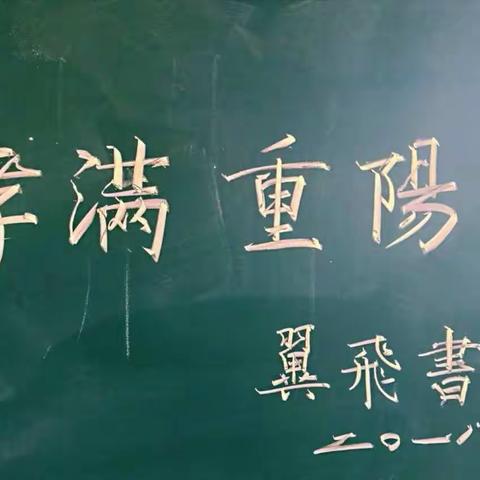 满重陽
翼飛書
二〇一